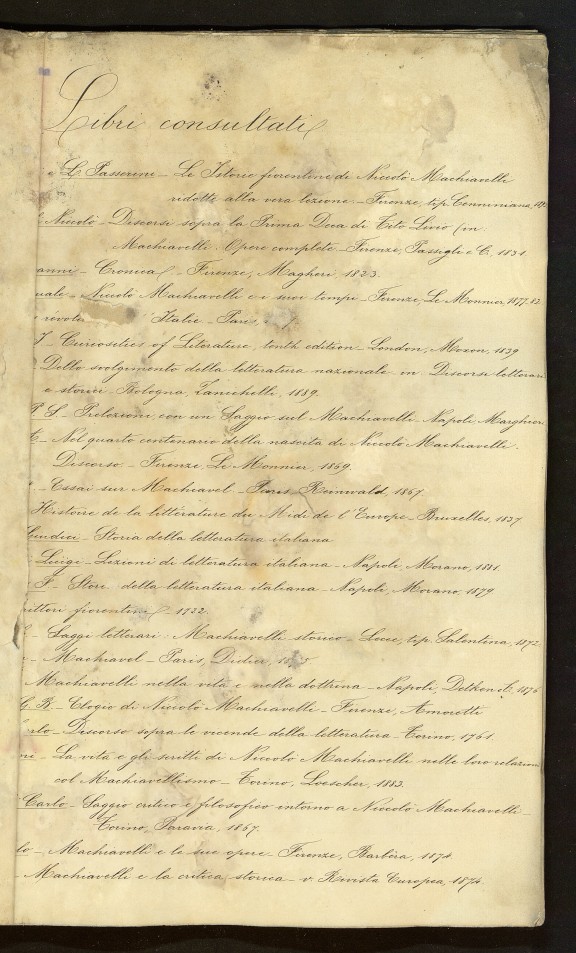 Libri consultati
e L. Passerini - Le Istorie fiorentine di Niccolò Machiavelli
ridotte alla vera lezione - Firenze, tip. Cenniniana,
Niccolò - Discorsi sopra la Prima Deca di Tito Livio (in
Machiavelli. Opere complete - Firenze, Passigli e C. 1831
anni - Cronica - Firenze, Magheri, 1823.
uale - Niccolò Machiavelli e i suoi tempi - Firenze, Le Monnier 1877-82
révolu Italie - Paris
I - Curiosities of Literature, tenth edition - London, Moxon, 1839
Dello svolgimento della letteratura nazionale in Discorsi letterari
e storici - Bologna, Zanichelli, 1889.
P. S. Prelezioni con un Saggio sul Machiavelli - Napoli, Marghieri
C - Nel quarto centenario della nascita di Niccolò Machiavelli -
Discorso - Firenze, Le Monnier, 1869.
- Essai sur Machiavel - Paris, Reinwald, 1867
Histoire de la littérature du Midi de l'Europe - Bruxelles, 1837
Giudici - Storia della letteratura italiana
Luigi - Lezioni di letteratura italiana - Napoli, Morano, 1881
F - Stori della letteratura italiana - Napoli, Morano, 1879
rittori fiorentini - 1722
- Saggi letterari: Machiavelli storico - Lecce, tip. Salentina, 1872
- Machiavel - Paris, Didier,
Machiavelli nella vita e nella dottrina - Napoli, Detken 1876
G. B. - Elogio di Niccolò Machiavelli - Firenze, Amoretti
arlo - Discorso sopra le vicende della letteratura - Torino, 1761.
ni - La vita e gli scritti di Niccolò Machiavelli nella loro relazione
col Machiavellismo - Torino, Loescher, 1883.
Carlo - Saggio critico e filosofico intorno a Niccolò Machiavelli -
Torino, Paravia, 1867.
lo - Machiavelli e le sue opere - Firenze, Barbèra, 1874
- Machiavelli e la critica storica - v. Rivista Europea, 1874.